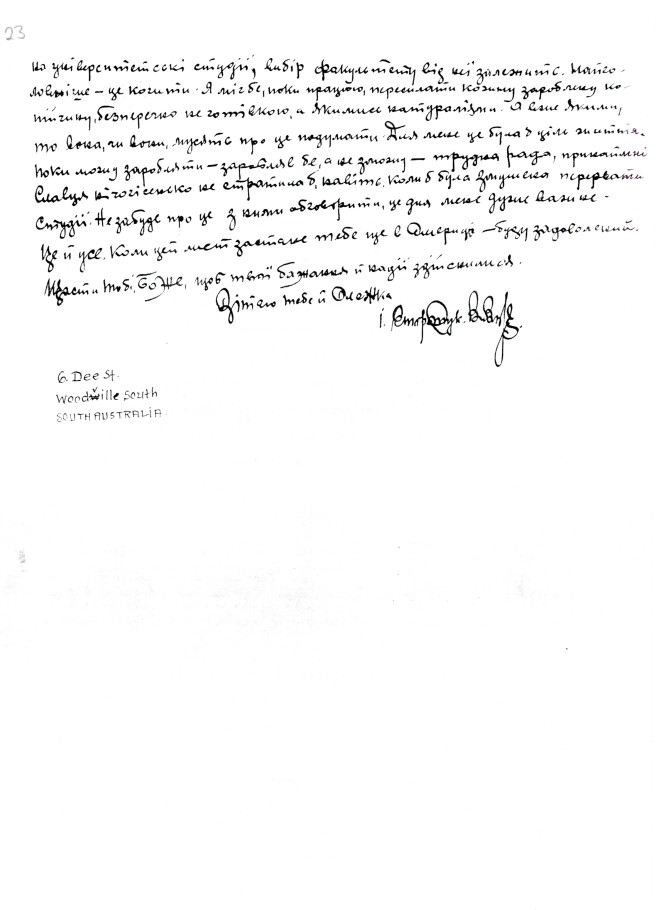 23
на університетські студії, вибір факультету від неї залежить. Найго-
ловніше – це кошти. Я міг бе, поки працюю, пересилати кожну зароблену ко-
пійчину, безперечно не готівкою, а якимись натураліями. А вже якими,
то вона, чи вони, мусять про це подумати. Для мене це була б ціль життя.
Поки можу заробляти – заробляв бе, а не зможу – трудна рада, принаймні
Славця нічогісінько не стратила б, навіть, коли б була змушена перервати
студії. Не забудь про це з ними обговорити, це для мене дуже важне.
Це й усе. Коли цей лист застане тебе ще в Америці – буду задоволений.
Щасти тобі, Боже, щоб твої бажання й надії здійснилися.
Вітаю тебе й Олежка
І.
6. Dee St.
Woodville South
SOUTH AUSTRALIA.